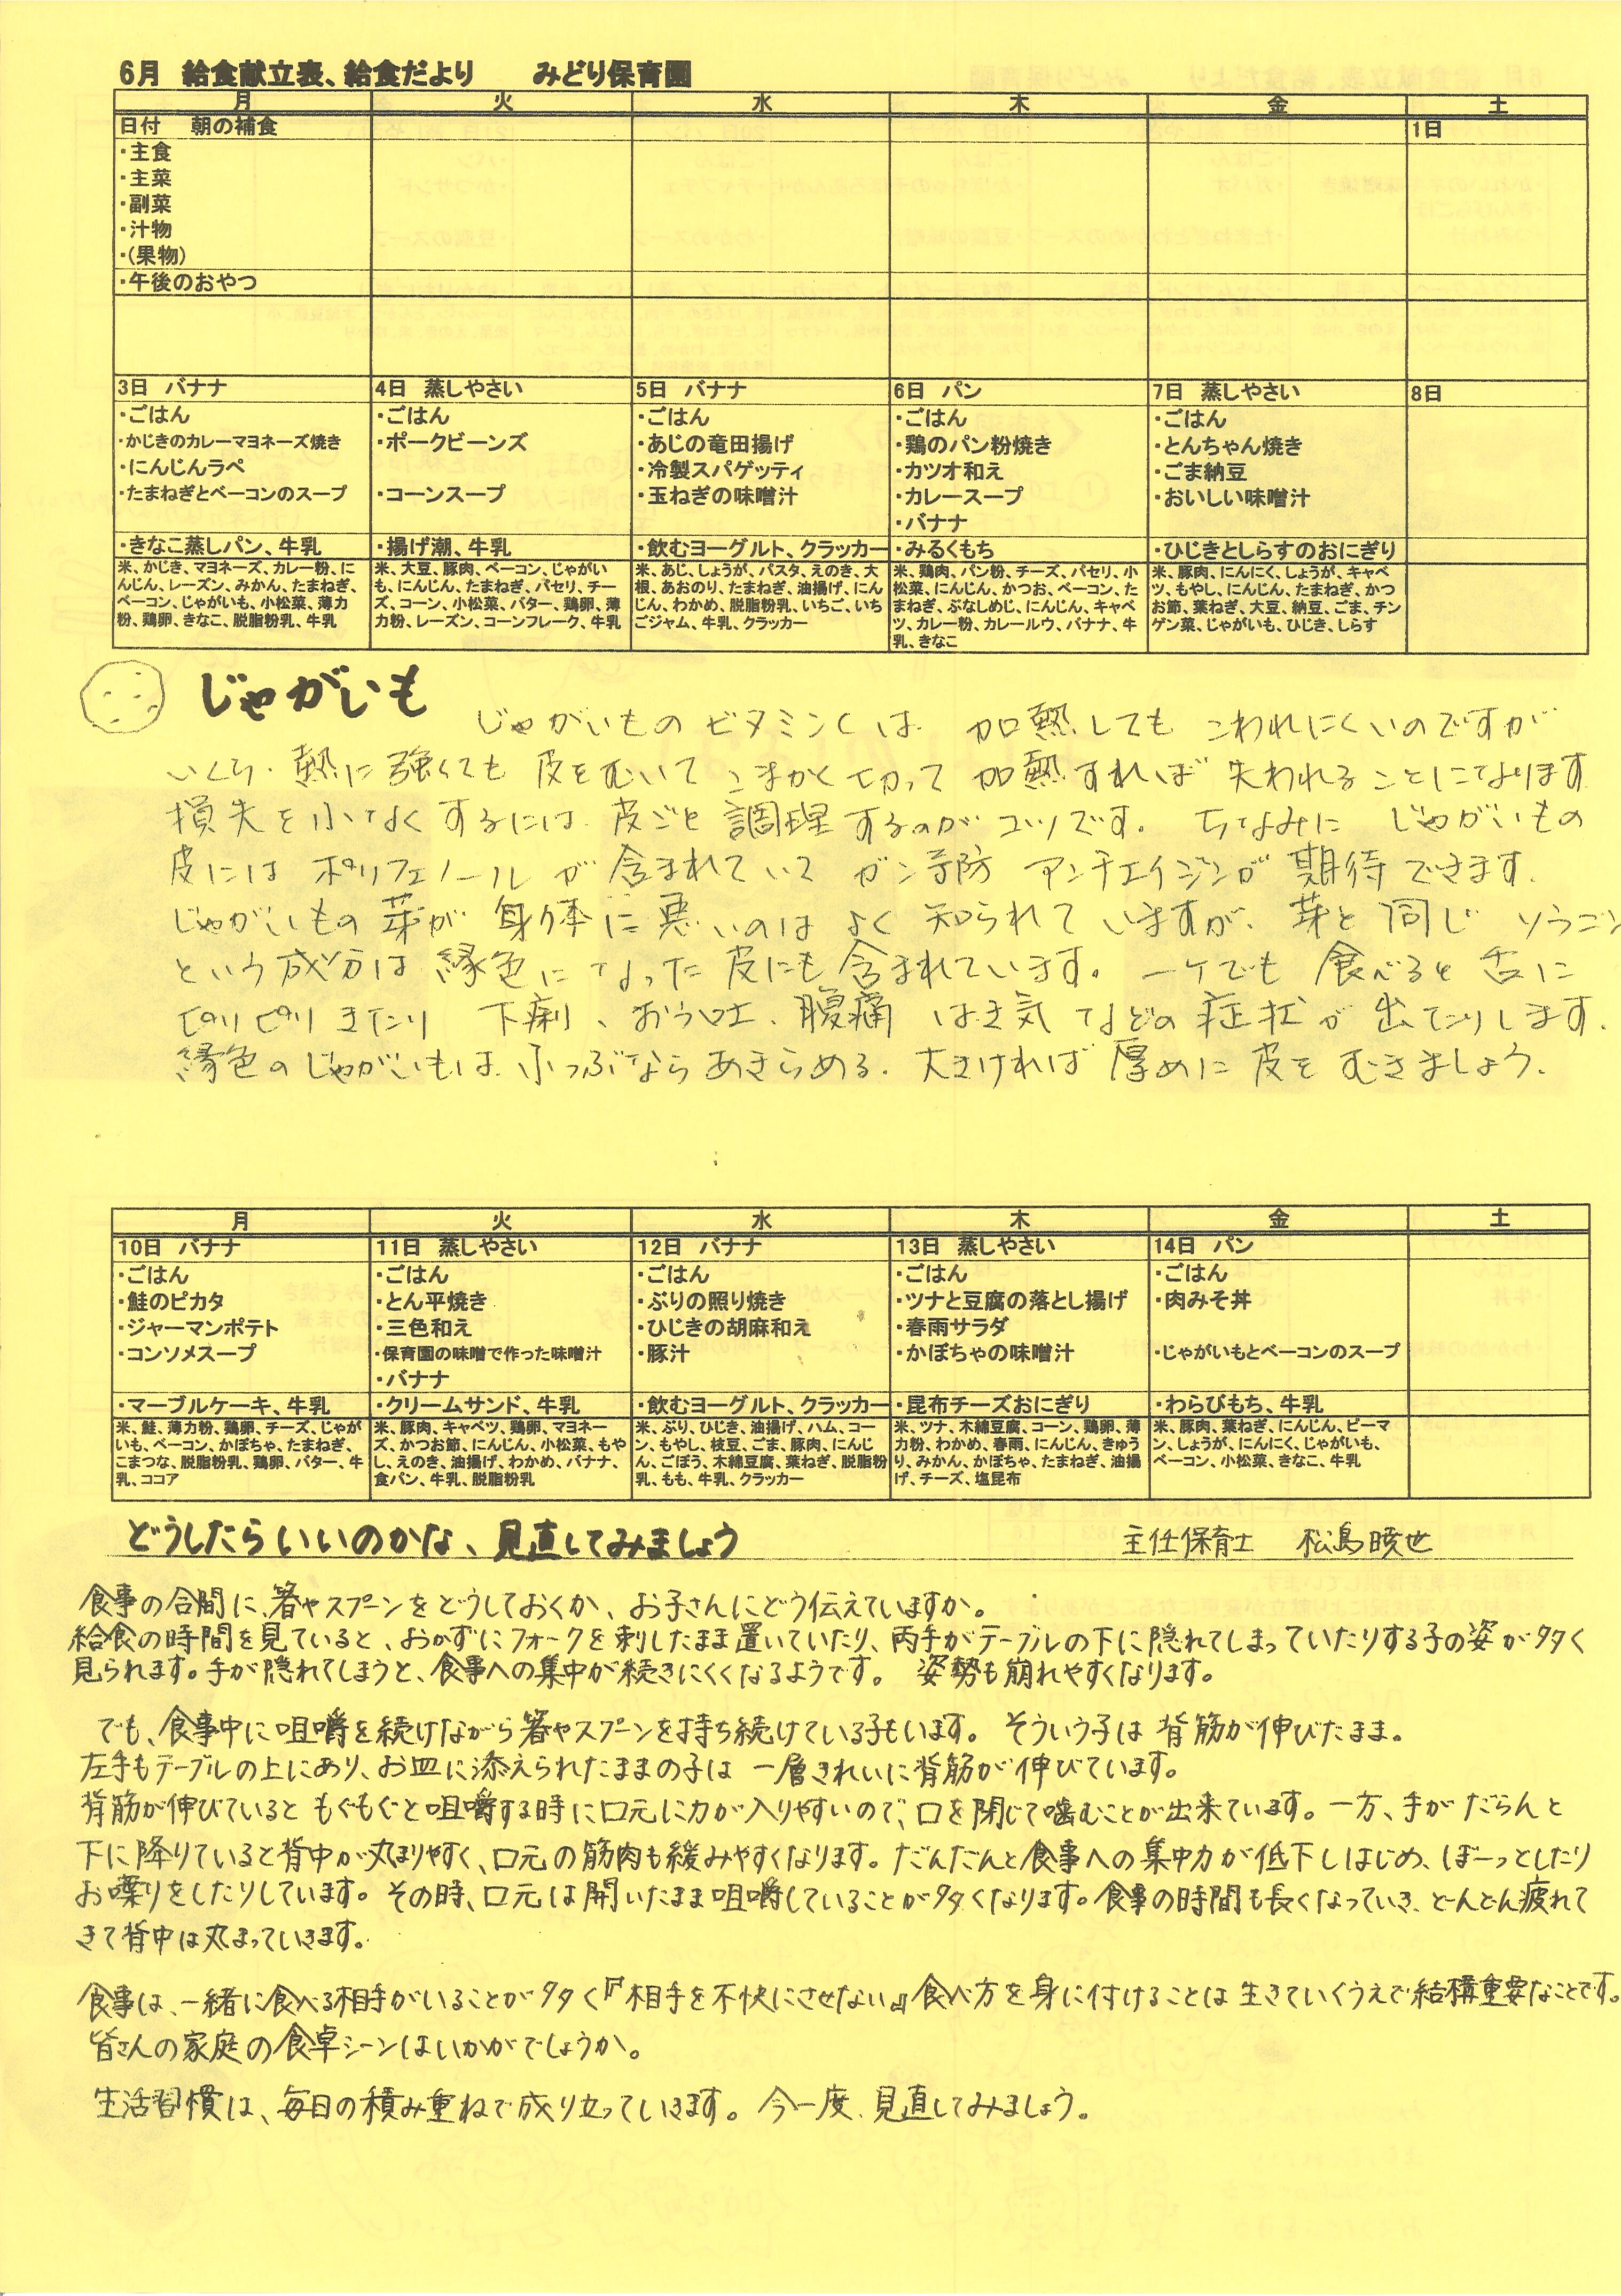 6月　給食献立表、給食だより　　みどり保育園
月　火　水　木　金　土
日付　朝の補食　1日
・主食
・主菜
・副菜
・汁物
・(果物)
・午後のおやつ
3日　バナナ　4日　蒸しやさい　5日　バナナ　6日　パン　7日　蒸しやさい　8日
・ごはん　・ごはん　・ごはん　・ごはん　・ごはん
・かじきのカレーマヨネーズ焼き　・ポークビーンズ　・あじの竜田揚げ　・鶏のパン粉焼き　・とんちゃん焼き
・にんじんラペ　・冷製スパゲッティ　・カツオ和え　・ごま納豆
・たまねぎとベーコンのスープ　・コーンスープ　・玉ねぎの味噌汁　・カレースープ　・おいしい味噌汁
・バナナ
・きなこ蒸しパン、牛乳　・揚げ潮、牛乳　・飲むヨーグルト、クラッカー　・みるくもち　・ひじきとしらすのおにぎり
米、かじき、マヨネーズ、カレー粉、に
んじん、レーズン、みかん、たまねぎ、
ベーコン、じゃがいも、小松菜、薄力
粉、鶏卵、きなこ、脱脂粉乳、牛乳
米、大豆、豚肉、ベーコン、じゃがい
も、にんじん、たまねぎ、パセリ、チー
ズ、コーン、小松菜、バター、鶏卵、薄
力粉、レーズン、コーンフレーク、牛乳
米、あじ、しょうが、パスタ、えのき、大
根、あおのり、たまねぎ、油揚げ、にん
じん、わかめ、脱脂粉乳、いちご、いち
ごジャム、牛乳、クラッカー
米、鶏肉、パン粉、チーズ、パセリ、小
松菜、にんじん、かつお、ベーコン、た
まねぎ、ぶなしめじ、にんじん、キャベ
ツ、カレー粉、カレールウ、バナナ、牛
乳、きなこ
米、豚肉、にんにく、しょうが、キャベ
ツ、もやし、にんじん、たまねぎ、かつ
お節、葉ねぎ、大豆、納豆、ごま、チン
ゲン菜、じゃがいも、ひじき、しらす
じゃがいも
じゃがいものビタミンCは　加熱しても　こわれにくいのですが
いくら・熱に強くても　皮をむいて　こまかく切って　加熱すれば　失われることになります
損失を少なくするには　皮ごと調理するのがコツです。　ちなみに　じゃがいもの
皮には　ポリフェノールが含まれていて　ガン予防　アンチエイジングが期待できます。
じゃがいもの芽が身体に悪いのはよく知られていますが、芽と同じ　ソラニン
という成分は緑色になった皮にも含まれています。一ケでも食べると舌に
ピリピリきたり　下痢、おう吐、腹痛　はき気などの症状が出たりします。
緑色のじゃがいもは、小つぶならあきらめる。大きければ厚めに皮をむきましょう。
月　火　水　木　金　土
10日　バナナ　11日　蒸しやさい　12日　バナナ　13日　蒸しやさい　14日　パン
・ごはん　・ごはん　・ごはん　・ごはん　・ごはん
・鮭のピカタ　・とん平焼き　・ぶりの照り焼き　・ツナと豆腐の落とし揚げ　・肉みそ丼
・ジャーマンポテト　・三色和え　・ひじきの胡麻和え　・春雨サラダ
・コンソメスープ　・保育園の味噌で作った味噌汁　・豚汁　・かぼちゃの味噌汁　・じゃがいもとベーコンのスープ
・バナナ
・マーブルケーキ、牛乳　・クリームサンド、牛乳　・飲むヨーグルト、クラッカー　・昆布チーズおにぎり　・わらびもち、牛乳
米、鮭、薄力粉、鶏卵、チーズ、じゃが
いも、ベーコン、かぼちゃ、たまねぎ、
こまつな、脱脂粉乳、鶏卵、バター、牛
乳、ココア
米、豚肉、キャベツ、鶏卵、マヨネー
ズ、かつお節、にんじん、小松菜、もや
し、えのき、油揚げ、わかめ、バナナ、
食パン、牛乳、脱脂粉乳
米、ぶり、ひじき、油揚げ、ハム、コー
ン、もやし、枝豆、ごま、豚肉、にんじ
ん、ごぼう、木綿豆腐、葉ねぎ、脱脂粉
乳、もも、牛乳、クラッカー
米、ツナ、木綿豆腐、コーン、鶏卵、薄
力粉、わかめ、春雨、にんじん、きゅう
り、みかん、かぼちゃ、たまねぎ、油揚
げ、チーズ、塩昆布
米、豚肉、葉ねぎ、にんじん、ピーマ
ン、しょうが、にんにく、じゃがいも、
ベーコン、小松菜、きなこ、牛乳
どうしたらいいのかな、見直してみましょう　　主任保育士　松島暁世
食事の合間に、箸やスプーンをどうしておくか、お子さんにどう伝えていますか。
給食の時間を見ていると、おかずにフォークを刺したまま置いていたり、両手がテーブルの下に隠れてしまっていたりする子の姿が多く
見られます。手が隠れてしまうと、食事への集中が続きにくくなるようです。　姿勢も崩れやすくなります。
でも、食事中に咀嚼を続けながら箸やスプーンを持ち続けている子もいます。そういう子は背筋が伸びたまま。
左手もテーブルの上にあり、お皿に添えられたままの子は一層きれいに背筋が伸びています。
背筋が伸びていると　もぐもぐと咀嚼する時に口元に力が入りやすいので、口を閉じて噛むことが出来ています。一方、手がだらんと
下に降りていると背中が丸まりやすく、口元の筋肉も緩みやすくなります。だんだんと食事への集中力が低下しはじめ、ぼーっとしたり
お喋りをしたりしています。その時、口元は開いたまま咀嚼していることが多くなります。食事の時間も長くなっていき、どんどん疲れて
きて背中は丸まっていきます。
食事は、一緒に食べる相手がいることが多く『相手を不快にさせない』食べ方を身に付けることは生きていくうえで結構重要なことです。
皆さんの家庭の食卓シーンはいかがでしょうか。
生活習慣は、毎日の積み重ねで成り立っていきます。今一度、見直してみましょう。